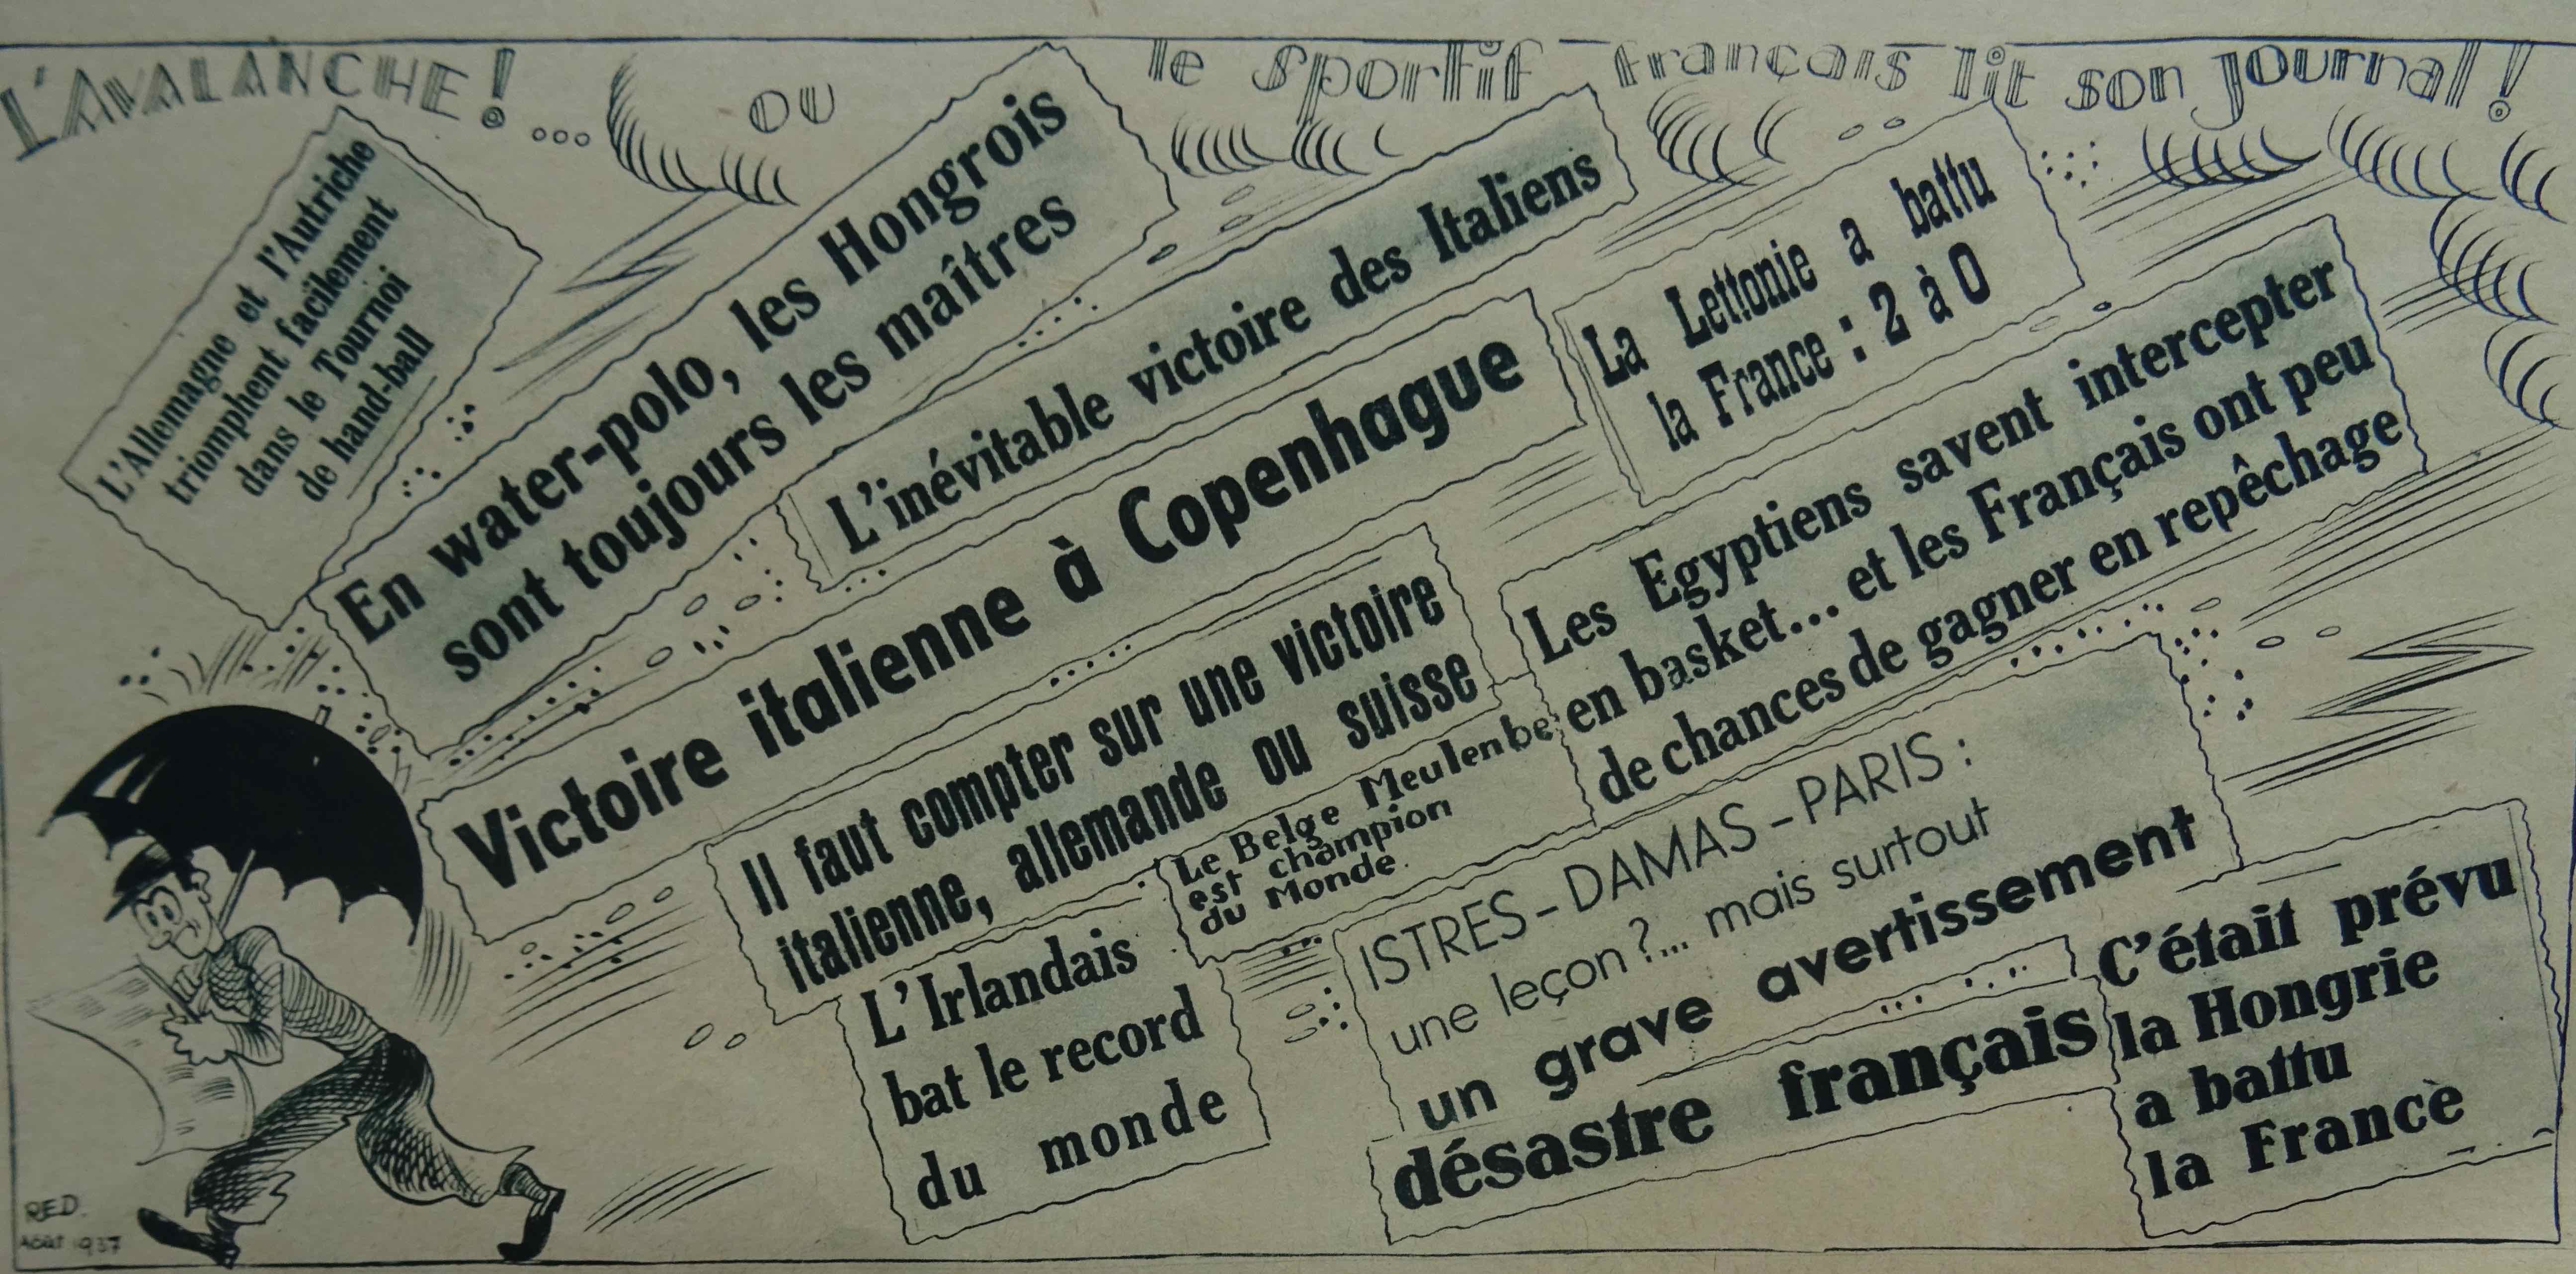 L'AVALANCHE!... OU le sportif français lit son journal!
L'Allemagne et l'Autriche
triomphent facilement
dans le Tournoi
de hand-ball
En water-polo, les Hongrois
sont toujours les maîtres
L'inévitable victoire des Italiens
Victoire italienne à Copenhague
La Lettonie a battu
la France : 2 à 0
Il faut compter sur une victoire
italienne, allemande ou suisse
Les Egyptiens savent intercepter
en basket... et les Français ont peu
de chances de gagner en repêchage
Le Belge Meulenbe
est champion
du Monde.
L'Irlandais
bat le record
du monde
ISTRES-DAMAS-PARIS :
une leçon?... mais surtout
un grave avertissement
désastre français
C'était prévu
la Hongrie
a battu
la France
RED.
AOUT 1937